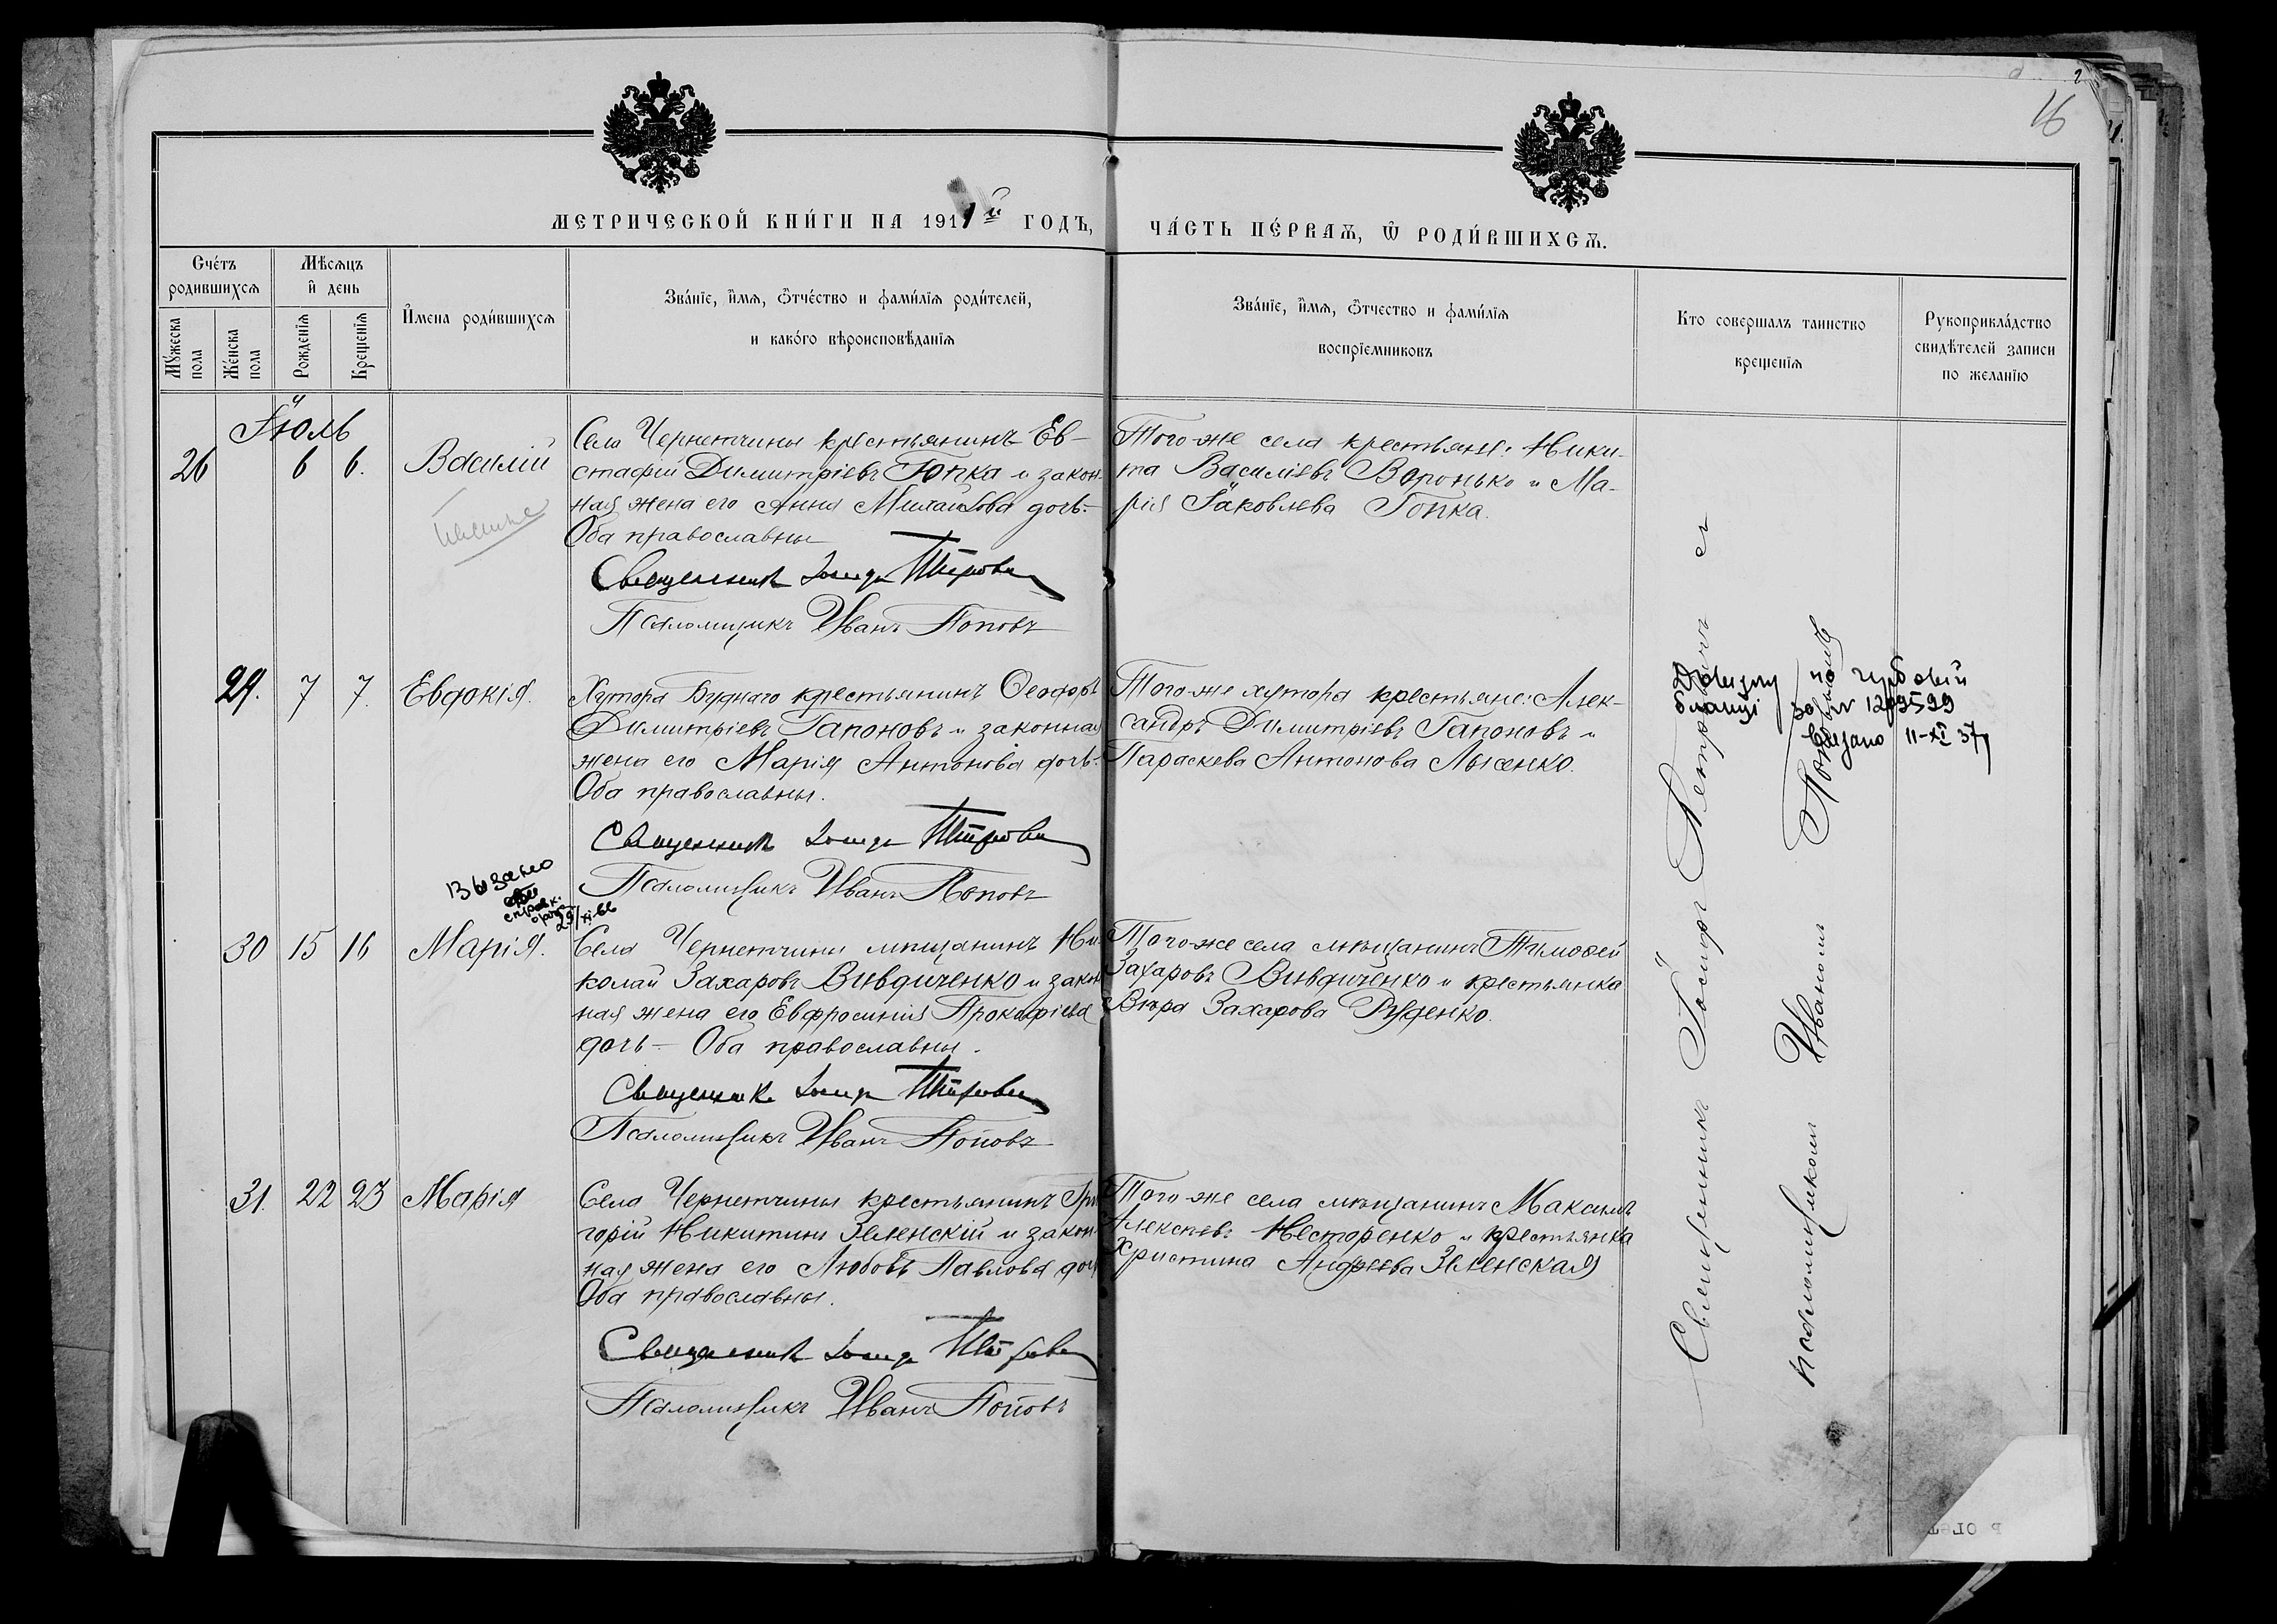 2
16
МЕТРИЧЕСКОЙ КНИ́ГИ НА 1911й ГОДЪ,
ЧА́СТЬ ПЕ́РВАѦ, Ѡ РОДИ́ВШИХСѦ.
Сче́тъ родившихсѧ
Му́жеска пола
Же́нска пола
Мѣсѧцъ и день
Рожденїѧ
Крещенїѧ
И҆́мена роди́вшихсѧ
Зва́нїе, и҆́мѧ, ѻ҆́тче́ство и фами́лїѧ роди́телей,
и како́го вѣроисповѣ́данїѧ
Зва́нїе, и҆́мѧ, ѻ҆́тчество и фами́лїѧ
воспрїемниковъ
Кто совершалъ таинство
крещенїѧ
Рукоприкла́дство
свидѣтелей записи
по желанїю
Іюль
26 6 6. Василій
Села Чернетчины крестьянинъ Ев-
стафій Димитріевъ Гопка и закон-
ная жена его Анна Михайлова дочь.-
Оба православны
Священникъ Іоаидъ Петровъ
Псаломщикъ Иванъ Поповъ
Того-же села крестьяне: Ники-
та Василіевъ Воронько и Ма-
рія Іаковлева Гопка.
29. 7 7. Евдокія.
Хутора Буднаго крестьянинъ Ѳеодоръ
Димитріевъ Гапоновъ и законная
жена его Марія Антонова дочь.-
Оба православны.
Священникъ Петровъ
Псаломщикъ Иванъ Поповъ
Того-же хутора крестьяне: Алек-
сандръ Димитріевъ Гапоновъ и
Параскева Антонова Лысенко.
№ 1209599
11-XI 37
29/XI-66
30 15 16 Марія.
Села Чернетчины мѣщанинъ Ни-
колай Захаровъ Вивдиченко и закон-
ная жена его Евфросинія Прокофіева
дочь- Оба православны.
Священникъ Петровъ
Псаломщикъ Иванъ Поповъ
Того-же села мѣщанинъ Тимоѳей
Захаровъ Вивдиченко и крестьянка
Вѣра Захарова Руденко.
31. 22 23 Марія
Села Чернетчины крестьянинъ Гри-
горій Никитинъ Зеленскій и закон-
ная жена его Любовь Павлова дочь
Оба православны.
Священникъ Петровъ
Псаломщикъ Иванъ Поповъ
Того-же села мѣщанинъ Максимъ
Алексѣевъ Несторенко и крестьянка
Христина Андреева Зеленская
Священникъ Петровичъ съ
псаломщикомъ Иваномъ Поповымъ